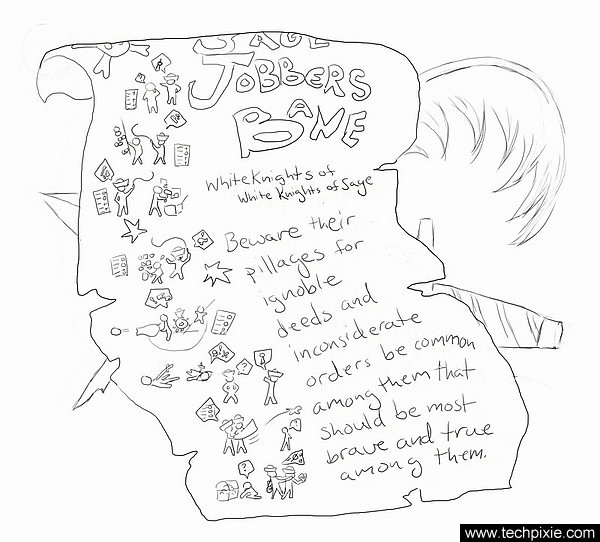 SAGE
JOBBERS
BANE
White Knights of
White Knights of Sage
Beware their
pillages for
ignoble
deeds and
inconsiderate
orders be common
among them that
should be most
brave and true
among them.
www.techpixie.com